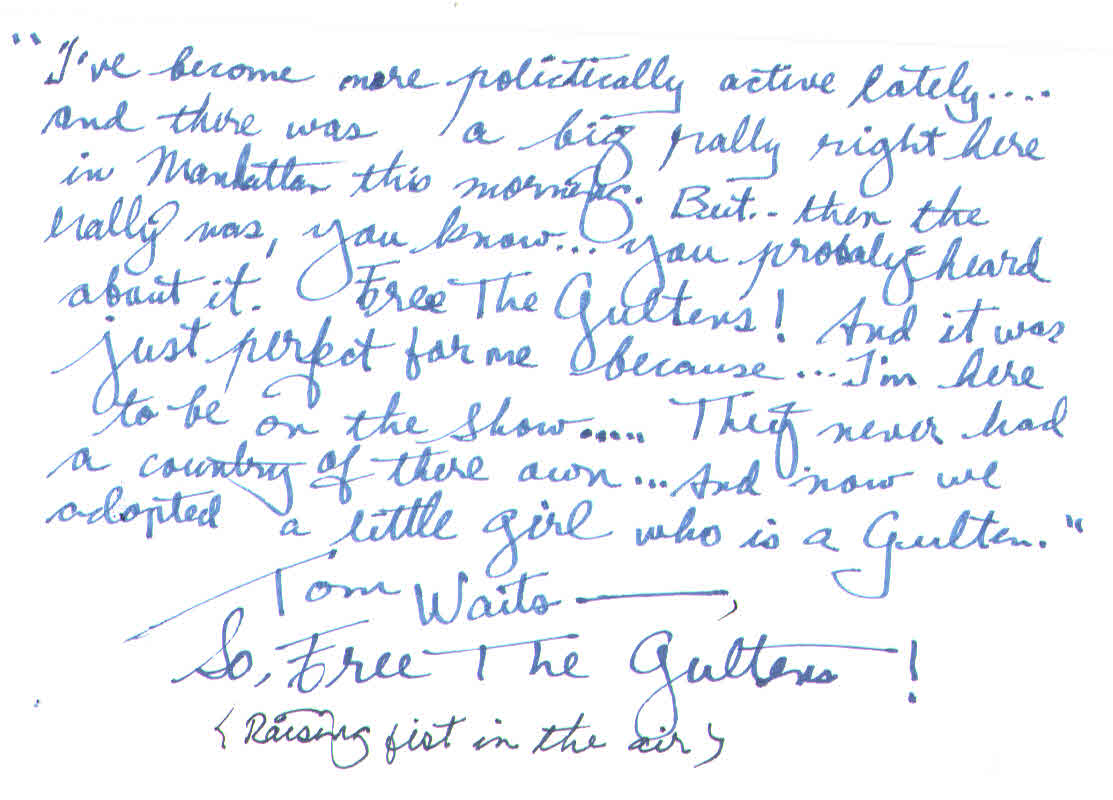 "I've become more polictically active lately....
and there was a big rally right here
in Manhattan this morning. But.. then the
rally was, you know... you probaly heard
about it. Free The Gultens! And it was
just perfect for me because... I'm here
to be on the show..... They never had
a country of there own... And now we
adopted a little girl who is a Gulten."
Tom Waits
So, Free The Gultens!
{Raising fist in the air}